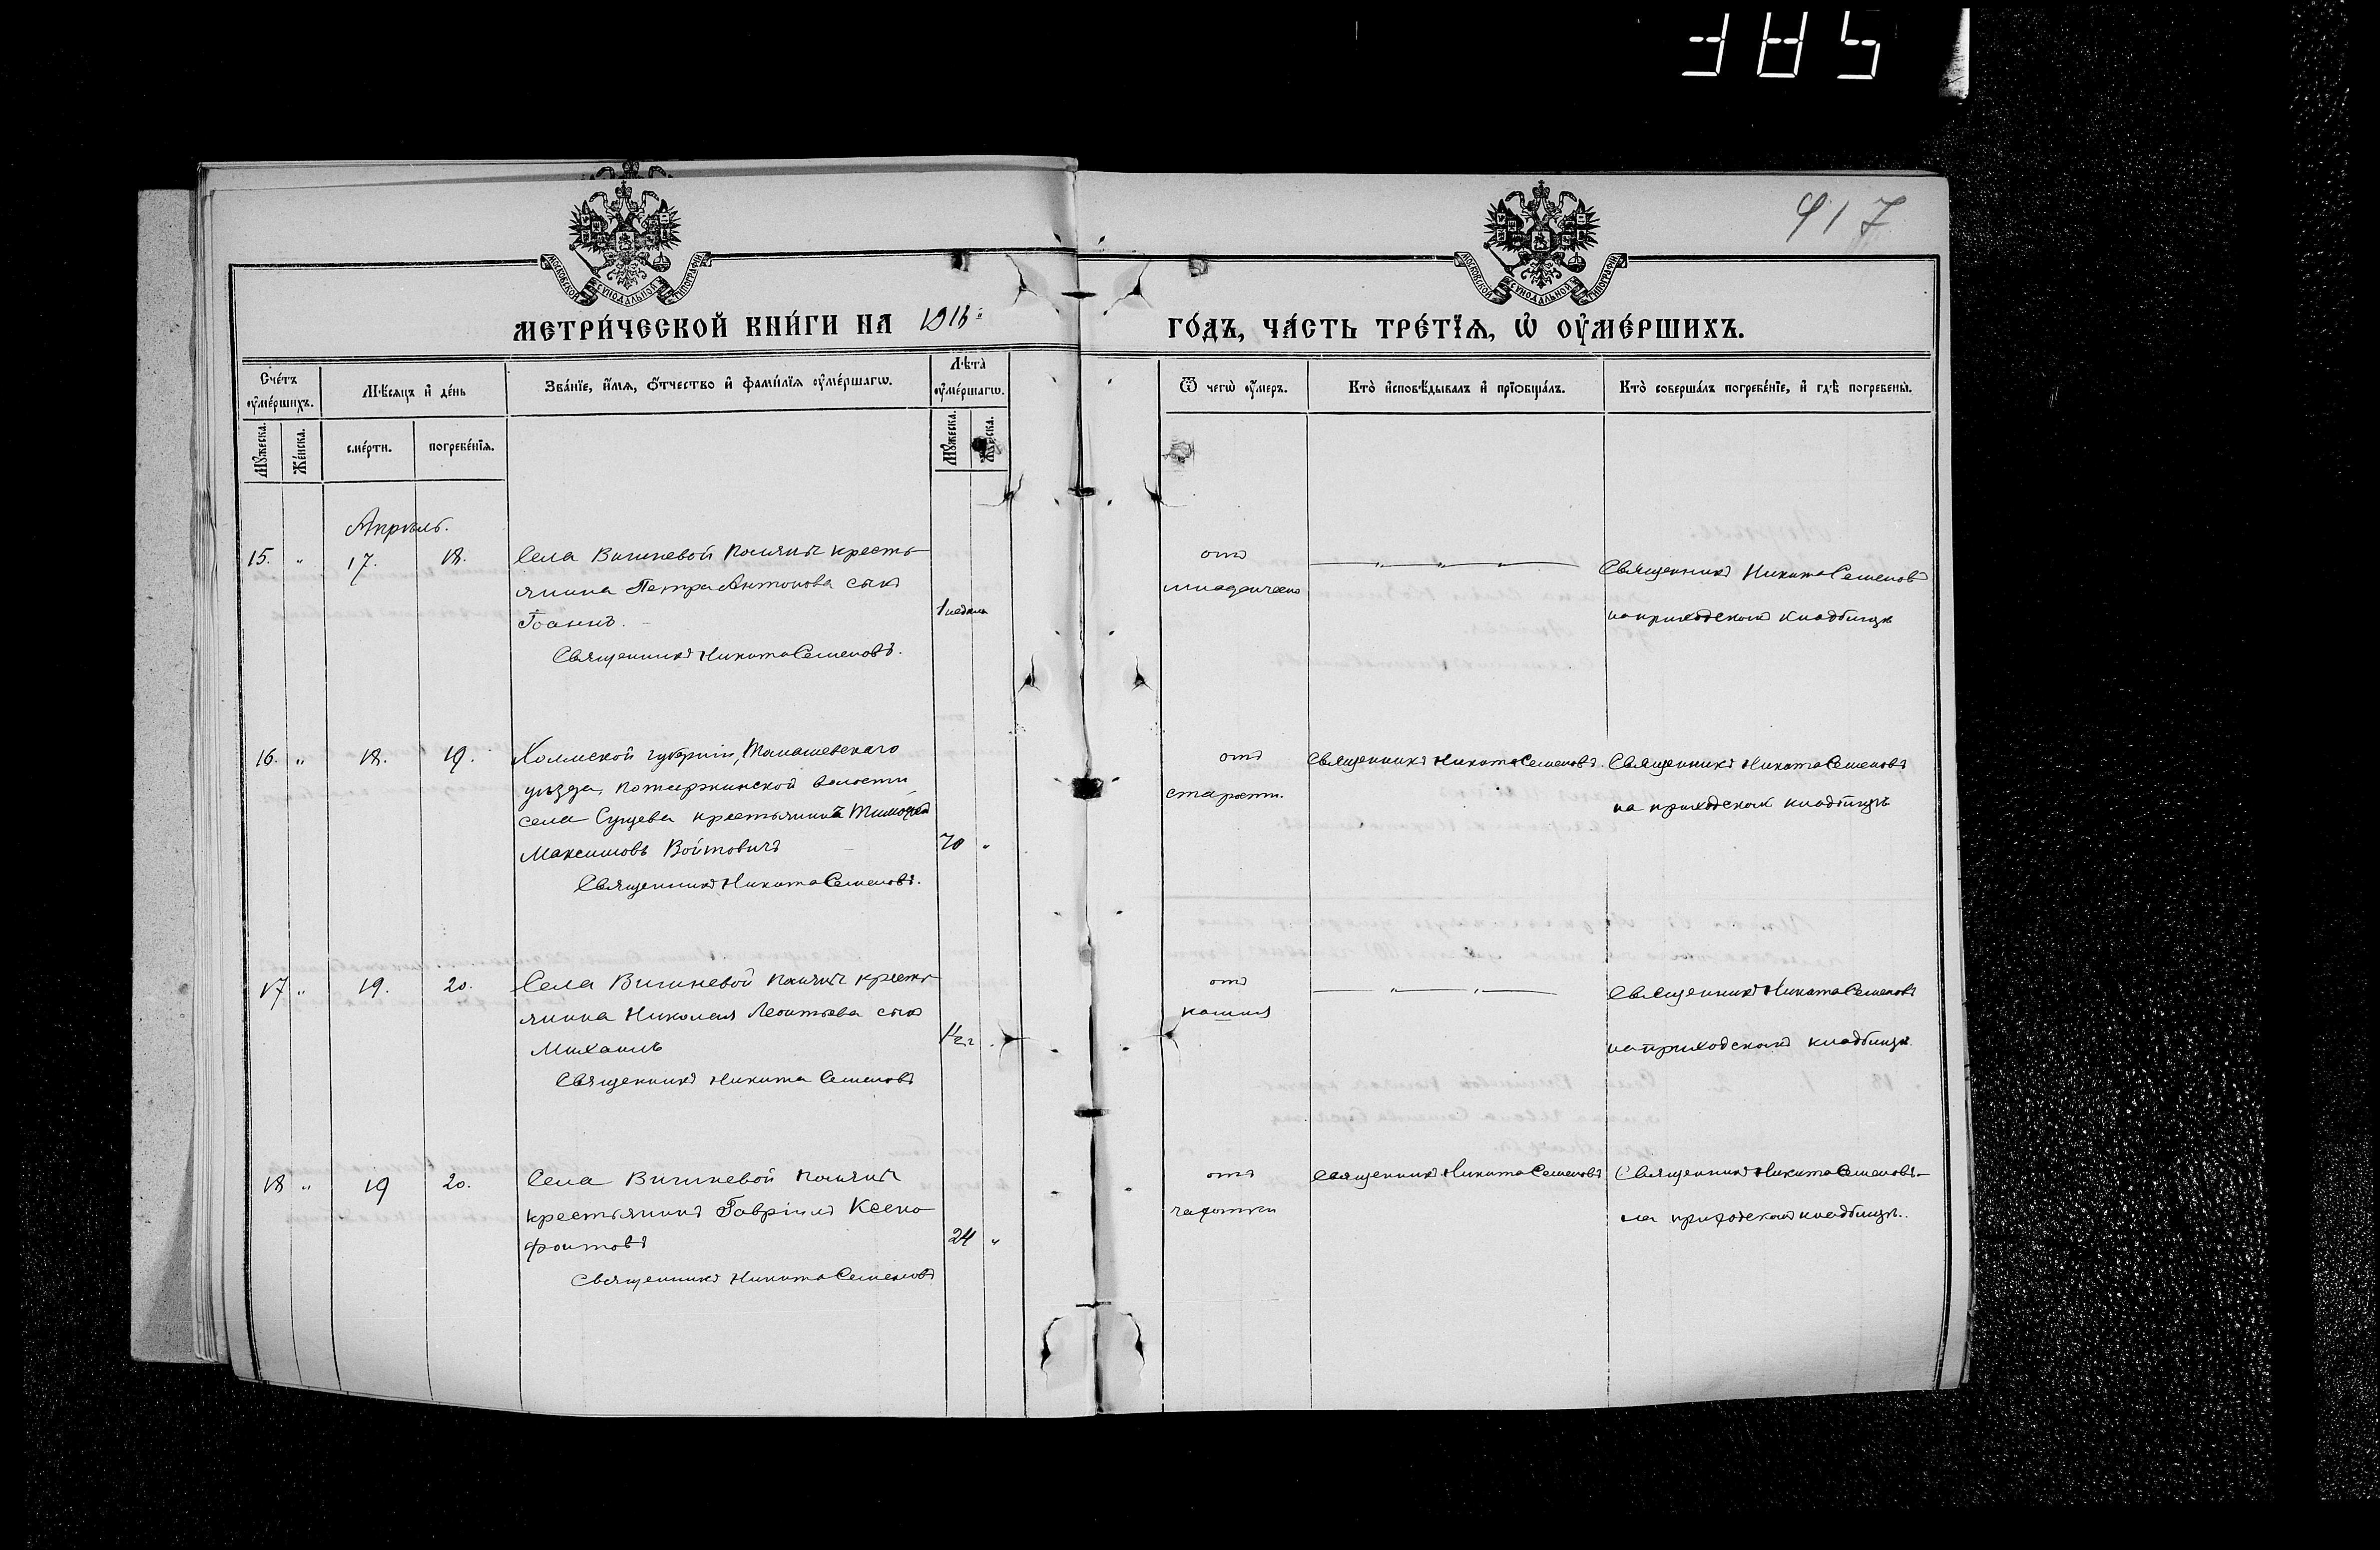 385
917
МОСКОВСКОЙ СѴНОДАЛЬНОЙ ТИПОГРАФІИ
МОСКОВСКОЙ СѴНОДАЛЬНОЙ ТИПОГРАФІИ
МЕТРИ́ЧЕСКОЙ КНИ́ГИ НА 1916 ГО́ДЪ, ЧА́СТЬ ТРЕ́ТЇѦ, Ѡ҆ ОУ҆МЕ́РШИХЪ.
Сче́тъ оу҆ме́ршихъ.
Мѣ́сяцъ и҆ де́нь
Зва́нїе, и҆́мѧ, ѻ҆́тчество и҆ фами́лїѧ оу҆ме́ршагѡ.
Лѣта̀ оу҆ме́ршагѡ.
Ѿ чегѡ̀ оу҆́меръ.
Кто̀ и҆сповѣ́дывалъ и҆ прїѡбща́лъ.
Кто̀ соверша́лъ погребе́нїе, и҆ гдѣ̀ погребены̀.
Мꙋ́жеска.
Же́нска.
сме́рти.
погребе́нїѧ.
Мꙋ́жеска.
Же́нска.
Апрѣль.
15. " 17. 18. Села Вишневой Поляны кресть-
янина Петра Антонова сынъ
Іоаннъ.
1 недѣля
Священникъ Никита Семеновъ.
отъ
младенческо
Священникъ Никита Семеновъ
на приходскомъ кладбищѣ
16. " 18. 19. Холмской губерніи, Томашевскаго
уѣзда, Потуржинской волости,
села Сущева крестьянинъ Тимофей
Максимовъ Войтовичъ
70 "
Священникъ Никита Семеновъ.
отъ
старости.
Священникъ Никита Семеновъ.
Священникъ Никита Семеновъ
на приходскомъ кладбищѣ
17 " 19. 20. Села Вишневой Поляны кресть-
янина Николая Леонтьева сынъ
Михаилъ
1/2 г
Священникъ Никита Семеновъ
отъ
кашля
Священникъ Никита Семеновъ
на приходскомъ кладбищѣ.
18 " 19 20. Села Вишневой Поляны
крестьянинъ Гавріилъ Ксено-
фонтовъ
24 "
Священникъ Никита Семеновъ
отъ
чахотки
Священникъ Никита Семеновъ
Священникъ Никита Семеновъ
на приходскомъ кладбищѣ.